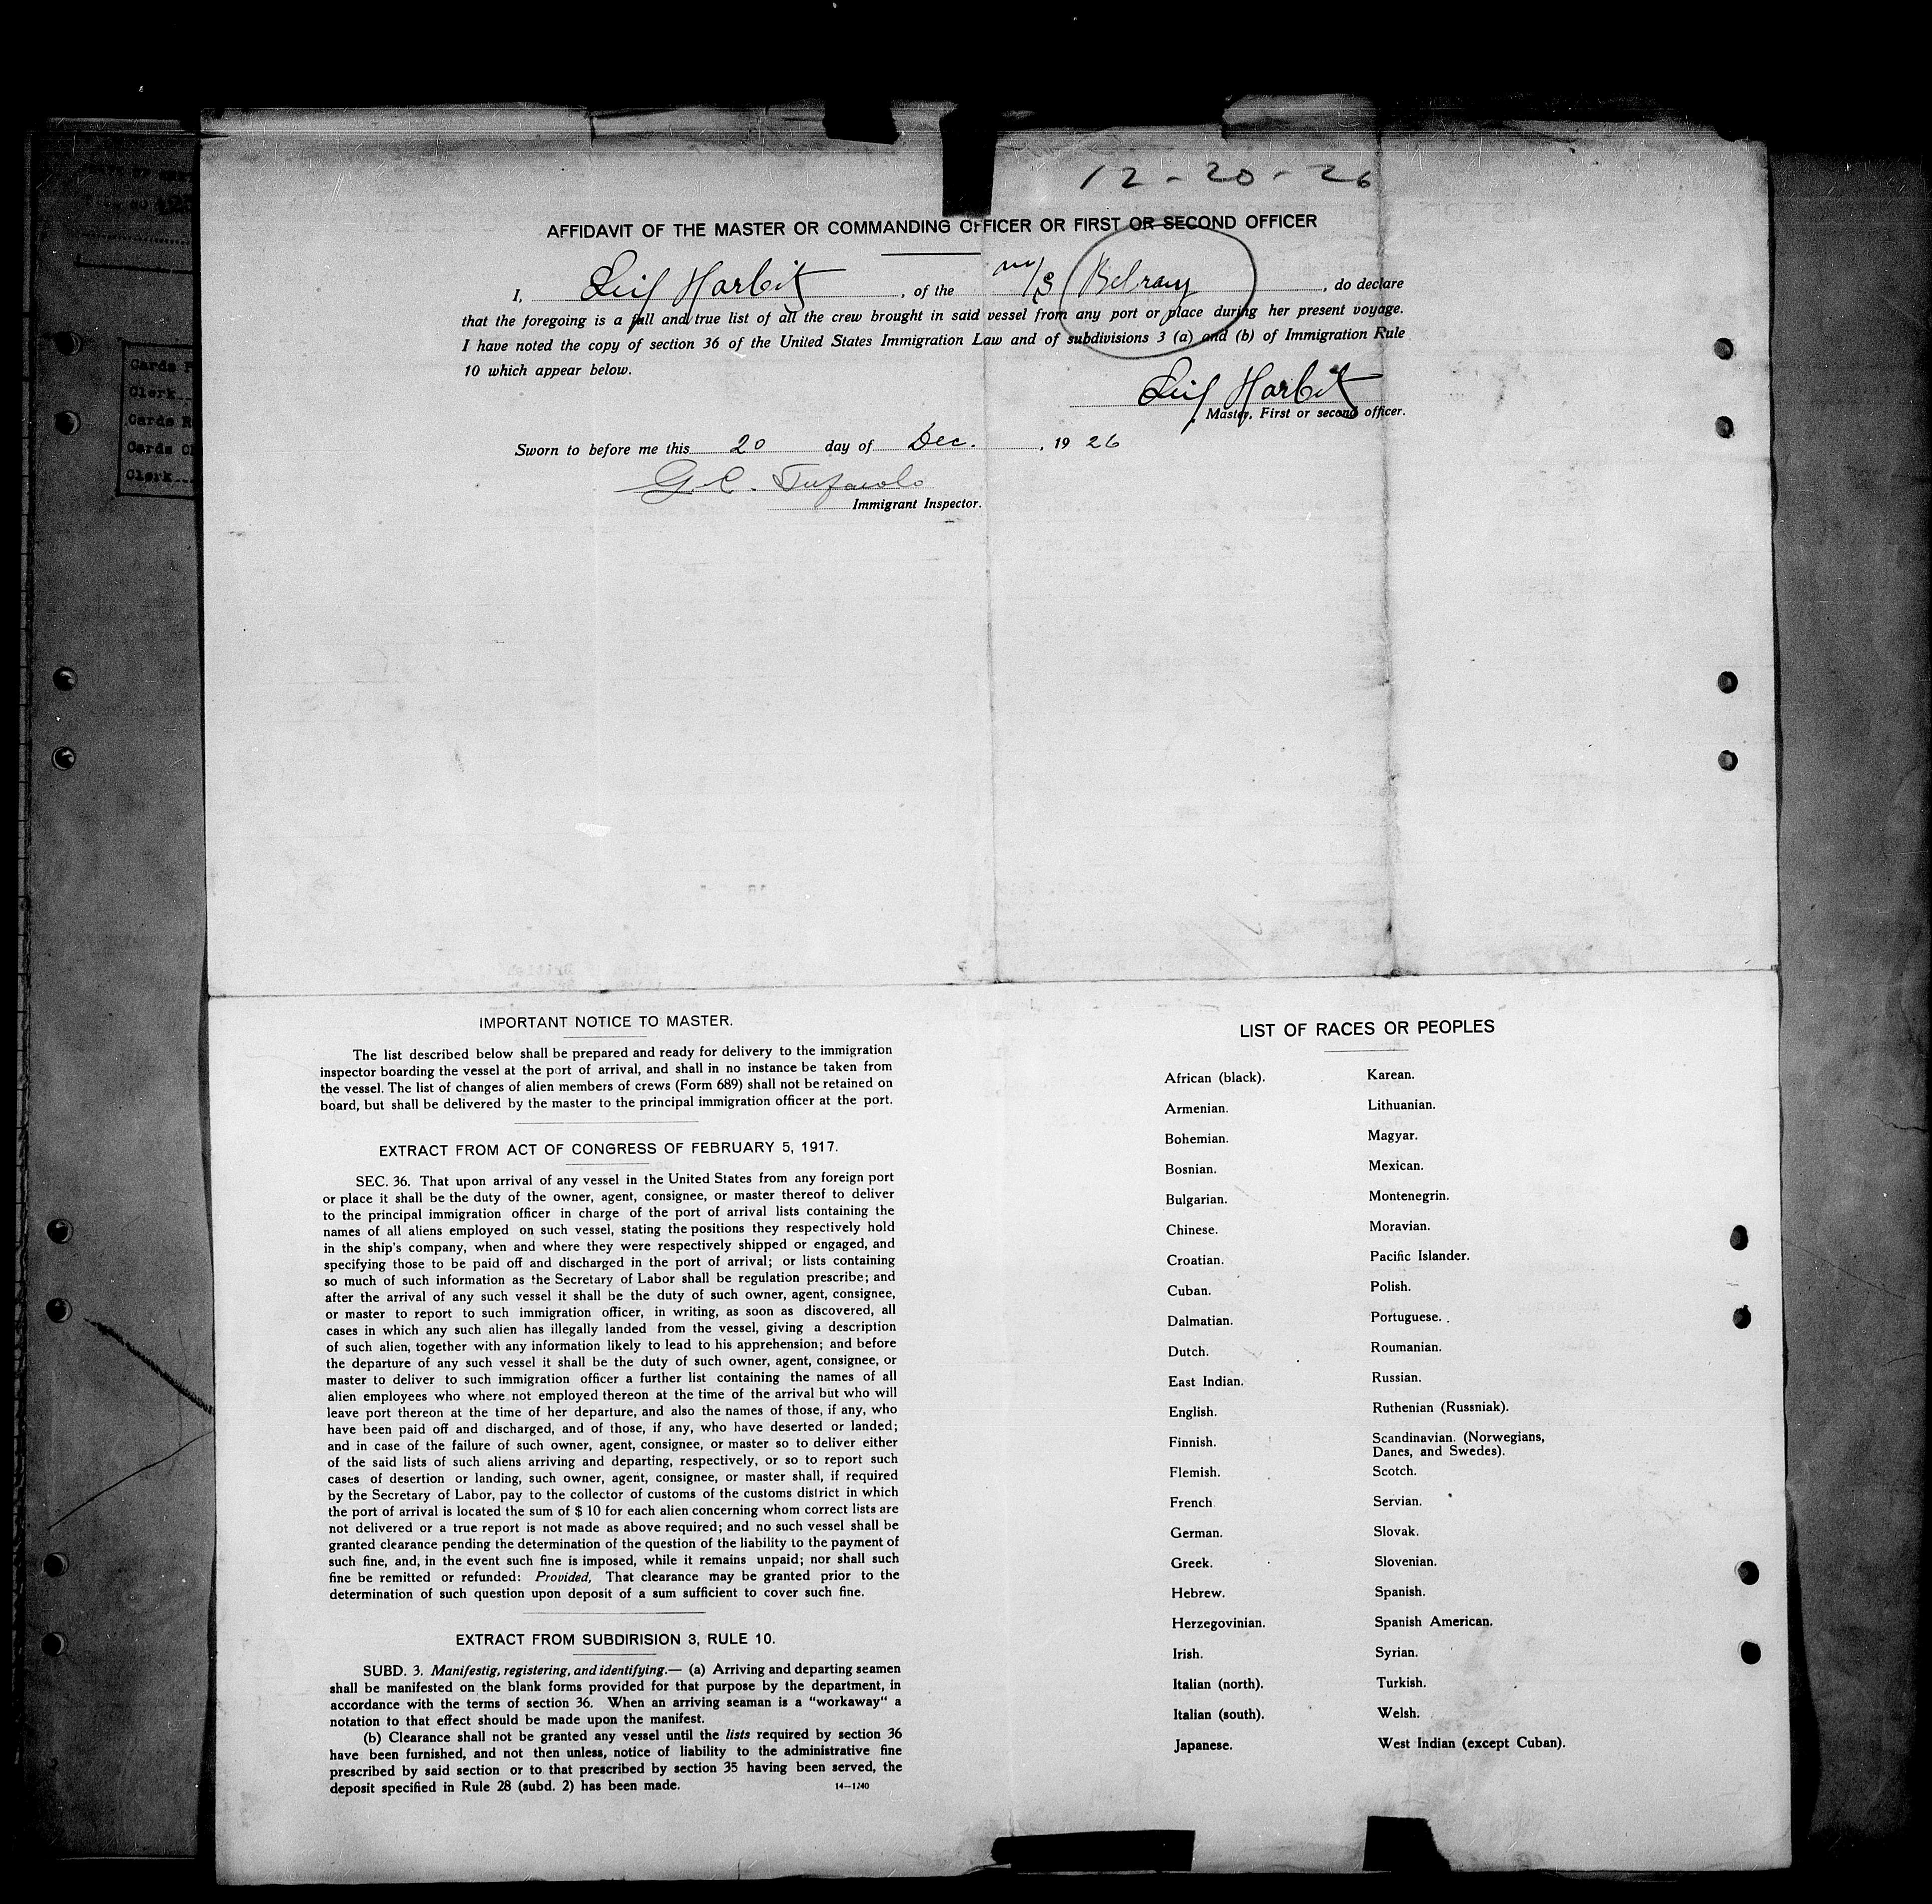 12-20-26
AFFIDAVIT OF THE MASTER OR COMMANDING OFFICER OR FIRST OR SECOND OFFICER
I, Leif Harbitz, of the m/S Belray, do declare
that the foregoing is a full and true list of all the crew brought in said vessel from any port or place during her present voyage.
I have noted the copy of section 36 of the United States Immigration Law and of subdivisions 3 (a) and (b) of Immigration Rule
10 which appear below.
Leif Harbitz
Master, First or second officer.
Sworn to before me this 20 day of Dec., 19 26
G. C.
Immigrant Inspector.
Cards
Clerk
Cards
Cards
Clerk
IMPORTANT NOTICE TO MASTER.
The list described below shall be prepared and ready for delivery to the immigration
inspector boarding the vessel at the port of arrival, and shall in no instance be taken from
the vessel. The list of changes of alien members of crews (Form 689) shall not be retained on
board, but shall be delivered by the master to the principal immigration officer at the port.
EXTRACT FROM ACT OF CONGRESS OF FEBRUARY 5, 1917.
SEC. 36. That upon arrival of any vessel in the United States from any foreign port
or place it shall be the duty of the owner, agent, consignee, or master thereof to deliver
to the principal immigration officer in charge of the port of arrival lists containing the
names of all aliens employed on such vessel, stating the positions they respectively hold
in the ship's company, when and where they were respectively shipped or engaged, and
specifying those to be paid off and discharged in the port of arrival; or lists containing
so much of such information as the Secretary of Labor shall be regulation prescribe; and
after the arrival of any such vessel it shall be the duty of such owner, agent, consignee,
or master to report to such immigration officer, in writing, as soon as discovered, all
cases in which any such alien has illegally landed from the vessel, giving a description
of such alien, together with any information likely to lead to his apprehension; and before
the departure of any such vessel it shall be the duty of such owner, agent, consignee, or
master to deliver to such immigration officer a further list containing the names of all
alien employees who where not employed thereon at the time of the arrival but who will
leave port thereon at the time of her departure, and also the names of those, if any, who
have been paid off and discharged, and of those, if any, who have deserted or landed;
and in case of the failure of such owner, agent, consignee, or master so to deliver either
of the said lists of such aliens arriving and departing, respectively, or so to report such
cases of desertion or landing, such owner, agent, consignee, or master shall, if required
by the Secretary of Labor, pay to the collector of customs of the customs district in which
the port of arrival is located the sum of $ 10 for each alien concerning whom correct lists are
not delivered or a true report is not made as above required; and no such vessel shall be
granted clearance pending the determination of the question of the liability to the payment of
such fine, and, in the event such fine is imposed, while it remains unpaid; nor shall such
fine be remitted or refunded: Provided, That clearance may be granted prior to the
determination of such question upon deposit of a sum sufficient to cover such fine.
EXTRACT FROM SUBDIRISION 3, RULE 10.
SUBD. 3. Manifestig, registering, and identifying.— (a) Arriving and departing seamen
shall be manifested on the blank forms provided for that purpose by the department, in
accordance with the terms of section 36. When an arriving seaman is a "workaway" a
notation to that effect should be made upon the manifest.
(b) Clearance shall not be granted any vessel until the lists required by section 36
have been furnished, and not then unless, notice of liability to the administrative fine
prescribed by said section or to that prescribed by section 35 having been served, the
deposit specified in Rule 28 (subd. 2) has been made.
14—1240
LIST OF RACES OR PEOPLES
African (black).
Armenian.
Bohemian.
Bosnian.
Bulgarian.
Chinese.
Croatian.
Cuban.
Dalmatian.
Dutch.
East Indian.
English.
Finnish.
Flemish.
French
German.
Greek.
Hebrew.
Herzegovinian.
Irish.
Italian (north).
Italian (south).
Japanese.
Karean.
Lithuanian.
Magyar.
Mexican.
Montenegrin.
Moravian.
Pacific Islander.
Polish.
Portuguese.
Roumanian.
Russian.
Ruthenian (Russniak).
Scandinavian. (Norwegians,
Danes, and Swedes).
Scotch.
Servian.
Slovak.
Slovenian.
Spanish.
Spanish American.
Syrian.
Turkish.
Welsh.
West Indian (except Cuban).